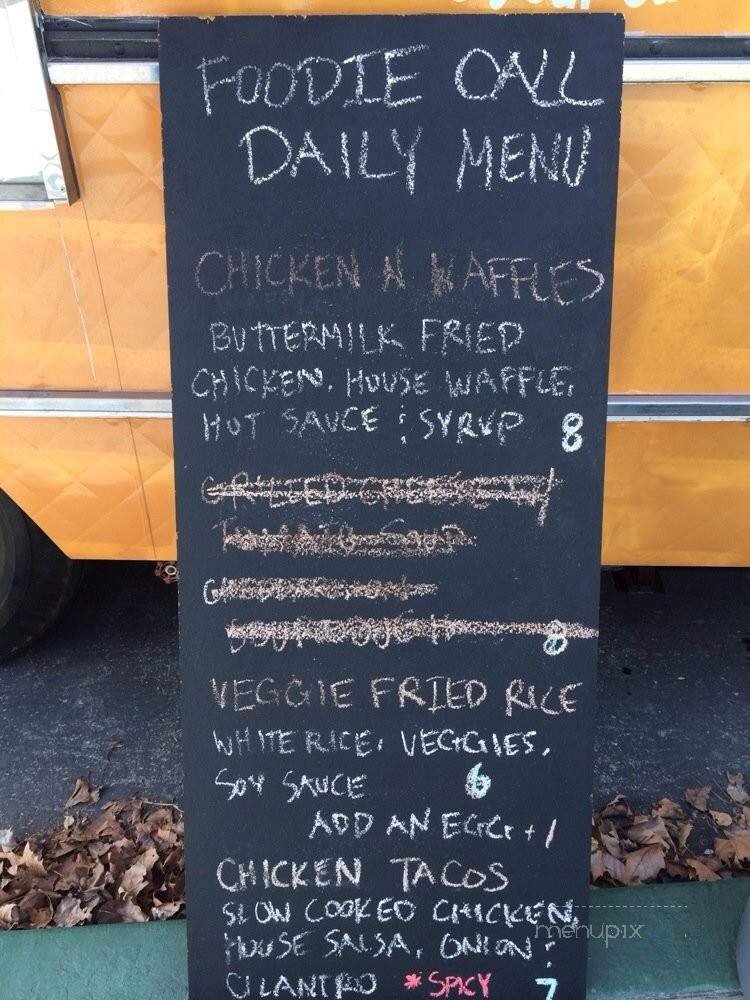 FOODIE CALL
DAILY MENU
CHICKEN N WAFFLES
BUTTERMILK FRIED
CHICKEN, HOUSE WAFFLE,
HOT SAUCE & SYRUP 8
GRILLED CHEESE W/
TOMATO SOUP
8
VEGGIE FRIED RICE
WHITE RICE, VEGGIES,
SOY SAUCE 6
ADD AN EGG +1
CHICKEN TACOS
SLOW COOKED CHICKEN,
HOUSE SALSA, ONION &
CILANTRO *SPICY 7
menupix